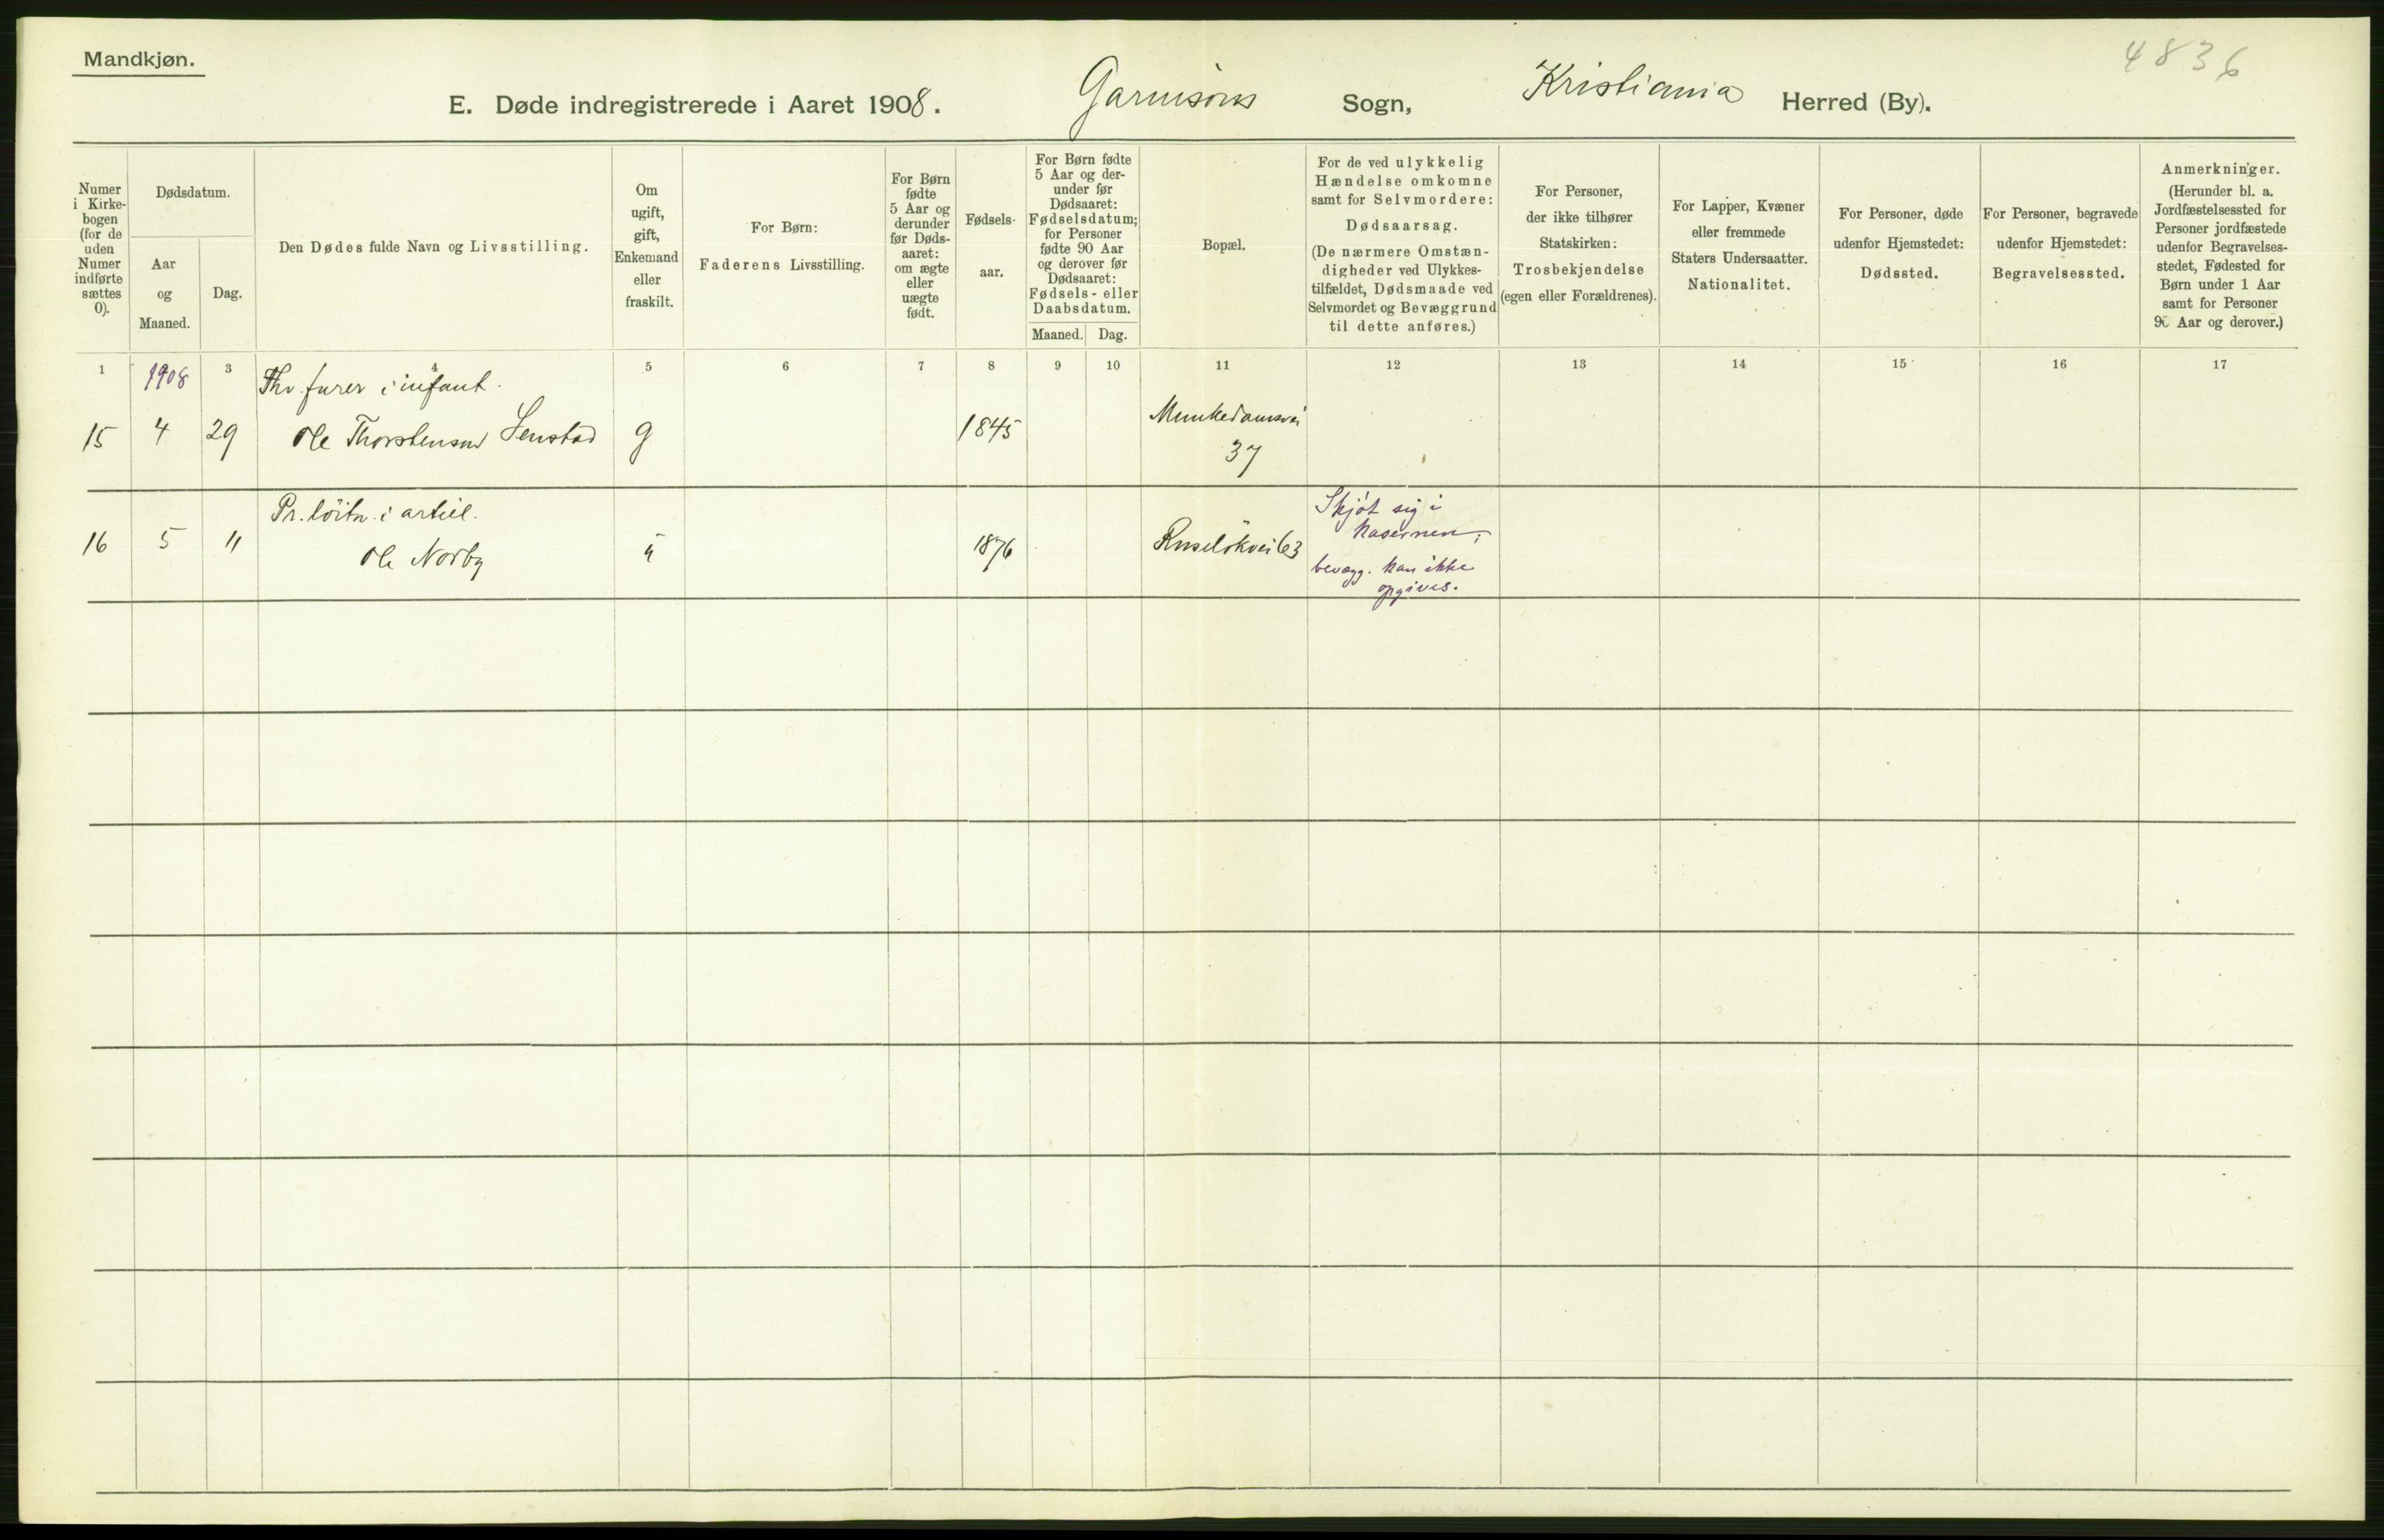 Mandkjøn.
4836
E. Døde indregistrerede i Aaret 1908. Garnisons Sogn, Kristiania Herred (By).
Numer
i Kirke-
bogen
(for de
uden
Numer
indførte
sættes
0).
Dødsdatum.
Aar
og
Maaned.
Dag.
Den Dødes fulde Navn og Livsstilling.
Om
ugift,
gift,
Enkemand
eller
fraskilt.
For Børn:
Faderens Livsstilling.
For Børn
fødte
5 Aar og
derunder
før Døds-
aaret:
om ægte
eller
uægte
født.
Fødsels-
aar.
For Børn fødte
5 Aar og der-
under før
Dødsaaret:
Fødselsdatum;
for Personer
fødte 90 Aar
og derover før
Dødsaaret:
Fødsels- eller
Daabsdatum.
Maaned. Dag.
Bopæl.
For de ved ulykkelig
Hændelse omkomne
samt for Selvmordere:
Dødsaarsag.
(De nærmere Omstæn-
digheder ved Ulykkes-
tilfældet, Dødsmaade ved
Selvmordet og Bevæggrund
til dette anføres.)
For Personer,
der ikke tilhører
Statskirken:
Trosbekjendelse
(egen eller Forældrenes).
For Lapper, Kvæner
eller fremmede
Staters Undersaatter.
Nationalitet.
For Personer, døde
udenfor Hjemstedet:
Dødssted.
For Personer, begravede
udenfor Hjemstedet:
Begravelsessted.
Anmerkninger.
(Herunder bl. a.
Jordfæstelsessted for
Personer jordfæstede
udenfor Begravelses-
stedet, Fødested for
Børn under 1 Aar
samt for Personer
90 Aar og derover.)
1 3 4 5 6 7 8 9 10 11 12 13 14 15 16 17
1908 furer i infant.
15 4 29 Ole Thorstensen Senstad g 1845 Munkedamsvei
37
Pr. löitn. i artill.
16 5 11 Ole Norby u 1876 Ruselökvei 63
Skjöt sig i
kasernen;
bevægg. kan ikke
opgives.